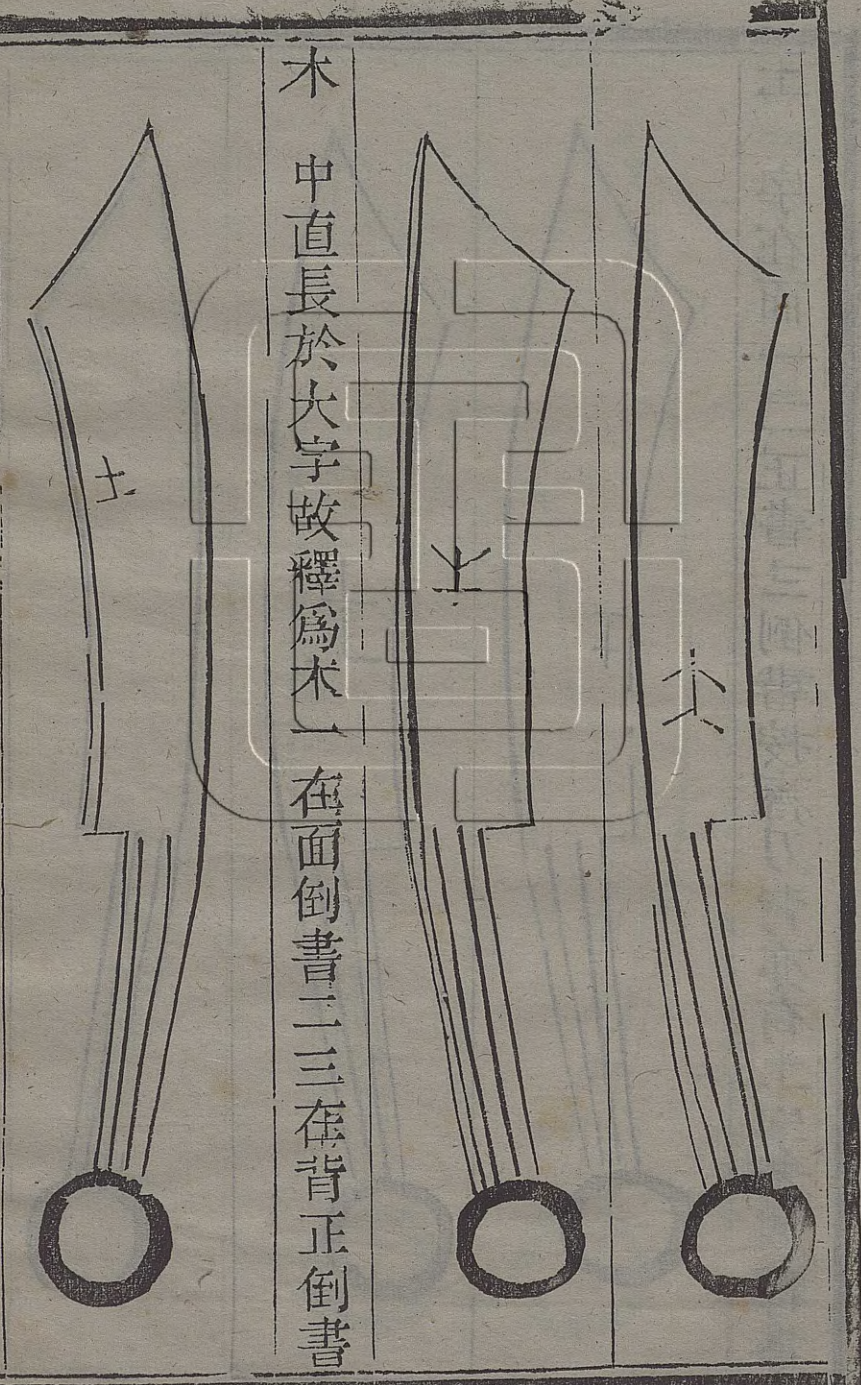 木　中直長於大字故釋爲木一在面倒書二三在背正倒書